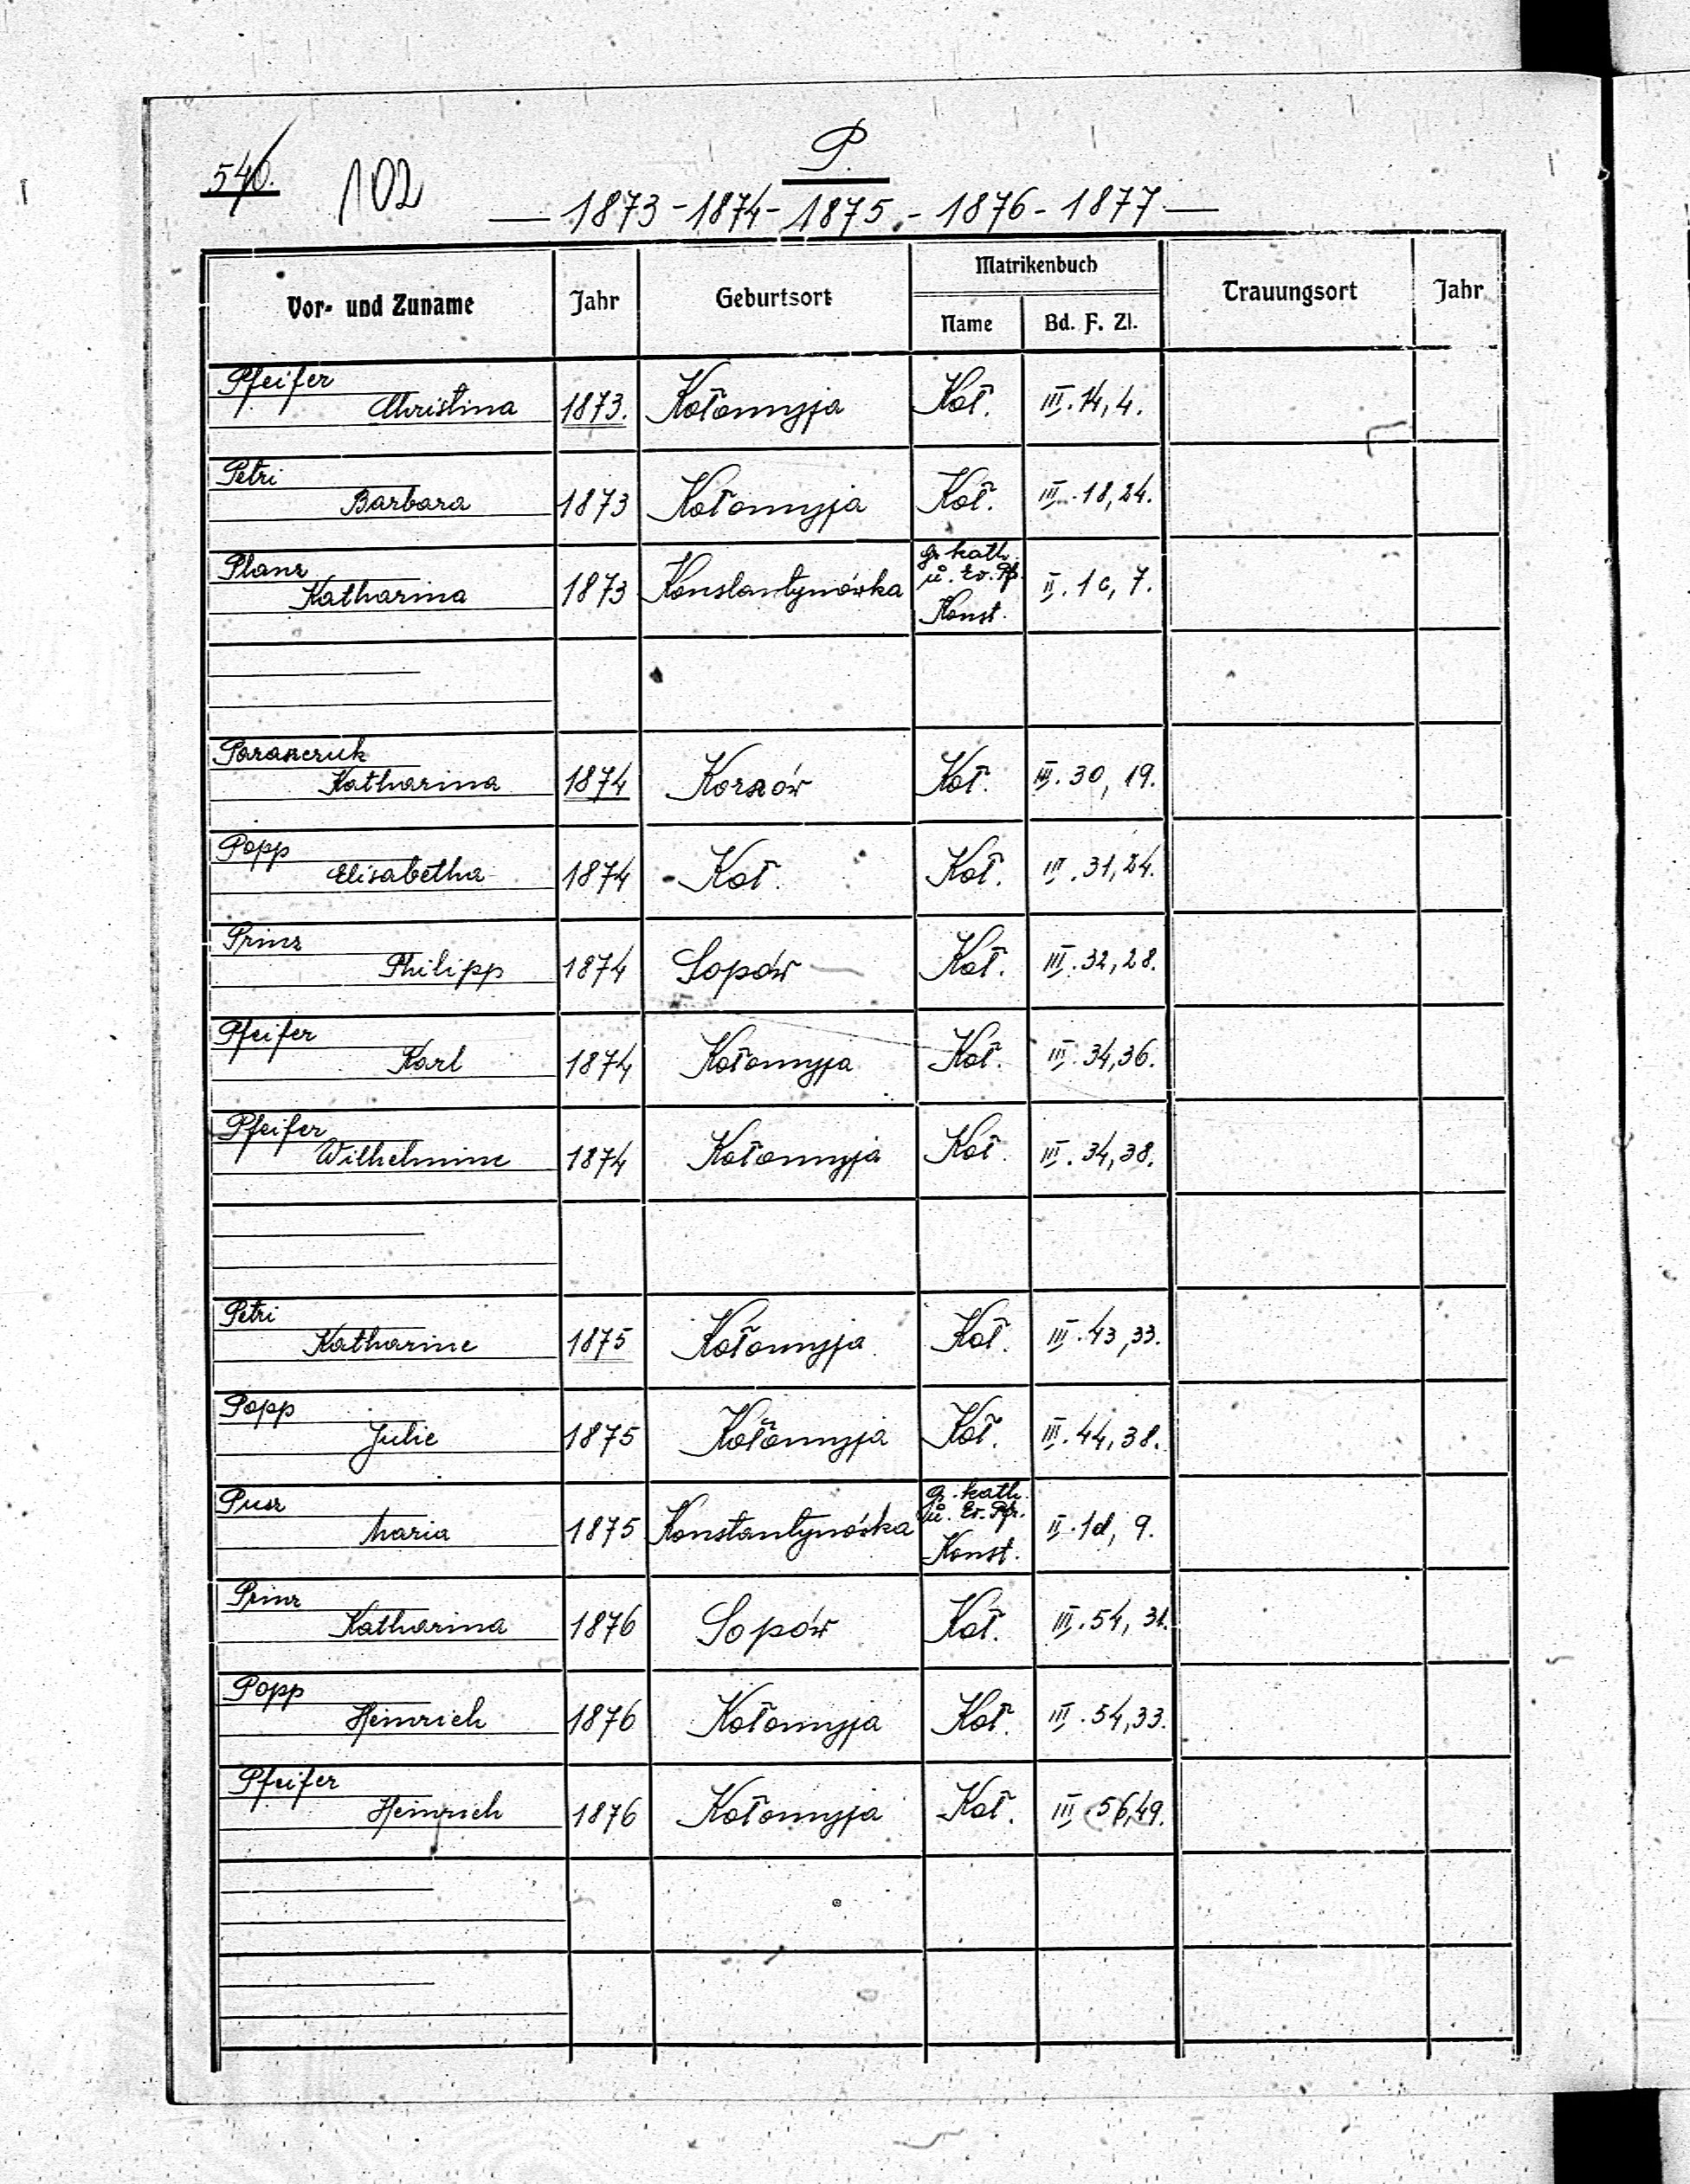 P.
540. 102
— 1873 - 1874 - 1875 - 1876 - 1877 —
Vor- und Zuname Jahr Geburtsort Matrikenbuch Trauungsort Jahr
Name Bd. F. Zl.
Pfeifer
Christina 1873. Kołomyja Koł. III. 14, 4.
Petri
Barbara 1873 Kołomyja Koł. III. 18, 24.
Planz gr. kath.
Katharina 1873 Konstantynówka u. Ev. Pf. II. 1c, 7.
Konst.
Paraszczuk
Katharina 1874 Korszów Koł. III. 30, 19.
Popp
Elisabetha 1874 Koł. Koł. III. 31, 24.
Prinz
Philipp 1874 Sopów Koł. III. 32, 28.
Pfeifer
Karl 1874 Kołomyja Koł. III. 34, 36.
Pfeifer
Wilhelmine 1874 Kołomyja Koł. III. 34, 38.
Petri
Katharine 1875 Kołomyja Koł. III. 43, 33.
Popp
Julie 1875 Kołomyja Koł. III. 44, 38.
gr. kath.
Maria 1875 Konstantynówka u. Ev. Pfr. II. 1d, 9.
Konst.
Prinz
Katharina 1876 Sopów Koł. III. 54, 31.
Popp
Heinrich 1876 Kołomyja Koł. III. 54, 33.
Pfeifer
Heinrich 1876 Kołomyja Koł. III. 56, 49.